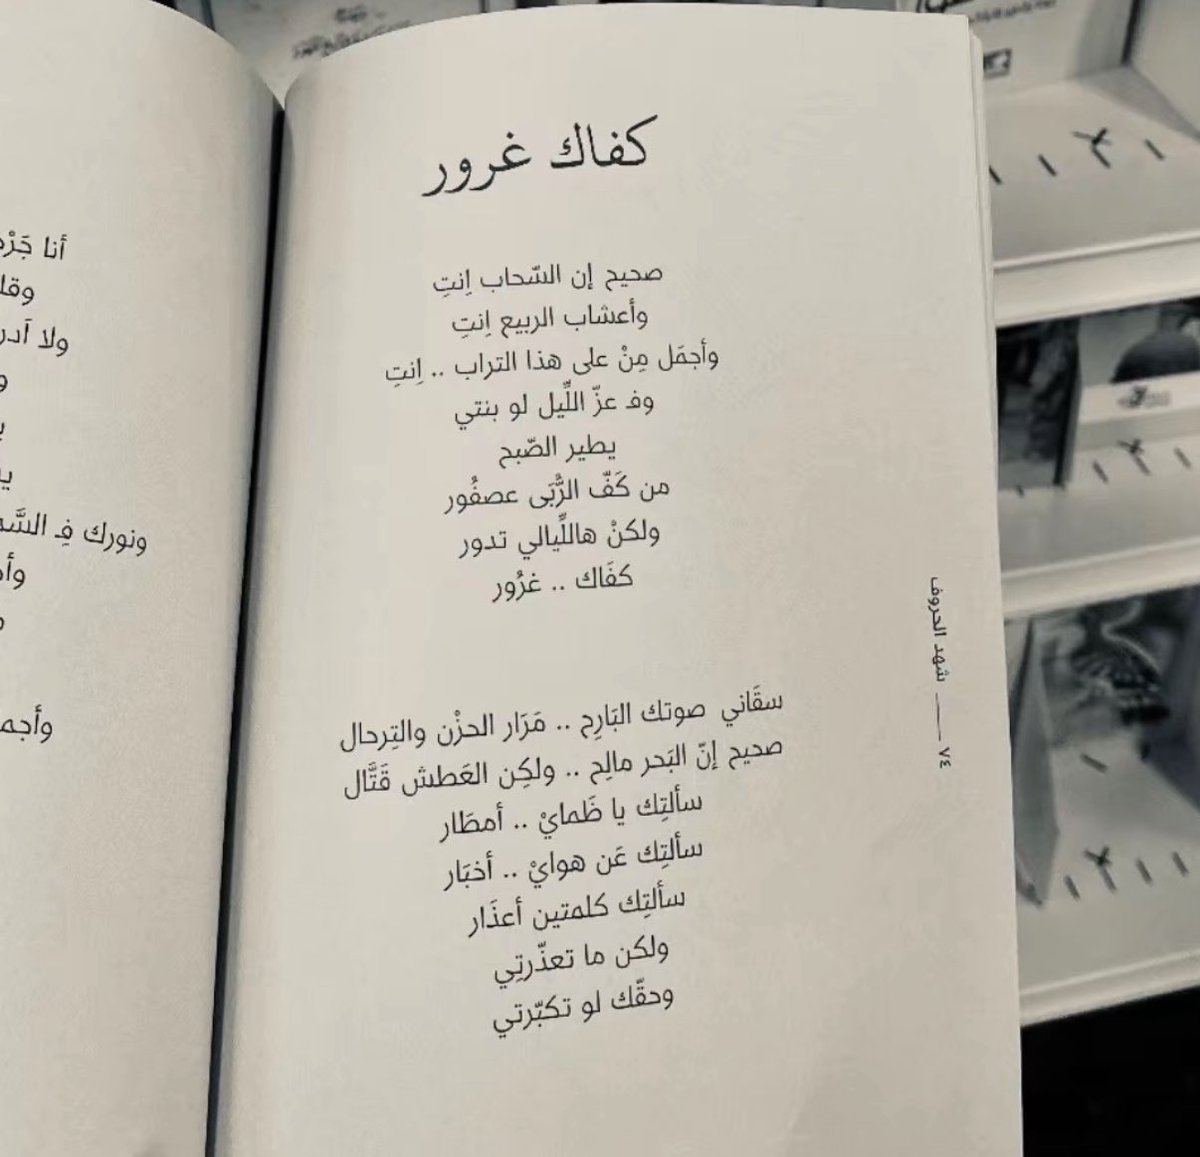 كفاك غرور
صحيح إن السّحاب اِنتِ
وأعشاب الربيع اِنتِ
وأجمَل مِنْ على هذا التراب .. اِنتِ
وفـ عزّ اللِّيل لو بنتي
يطير الصّبح
من كَفّ الرُّبَى عصفُور
ولكنْ هاللِّيالي تدور
كفَاك .. غرُور
سقَاني صوتك البَارِح .. مَرَار الحزْن والتِرحال
صحيح إنّ البَحر مالِح .. ولكِن العَطش قَتَّال
سألتِك يا ظَمايْ .. أمطَار
سألتِك عَن هوايْ .. أخبَار
سألتِك كلمتين أعذَار
ولكن ما تعذّرتِي
وحقّك لو تكبّرتي
شهد الحروف ــــــ ٧٤
أنا
ولا
ونورك فِـ